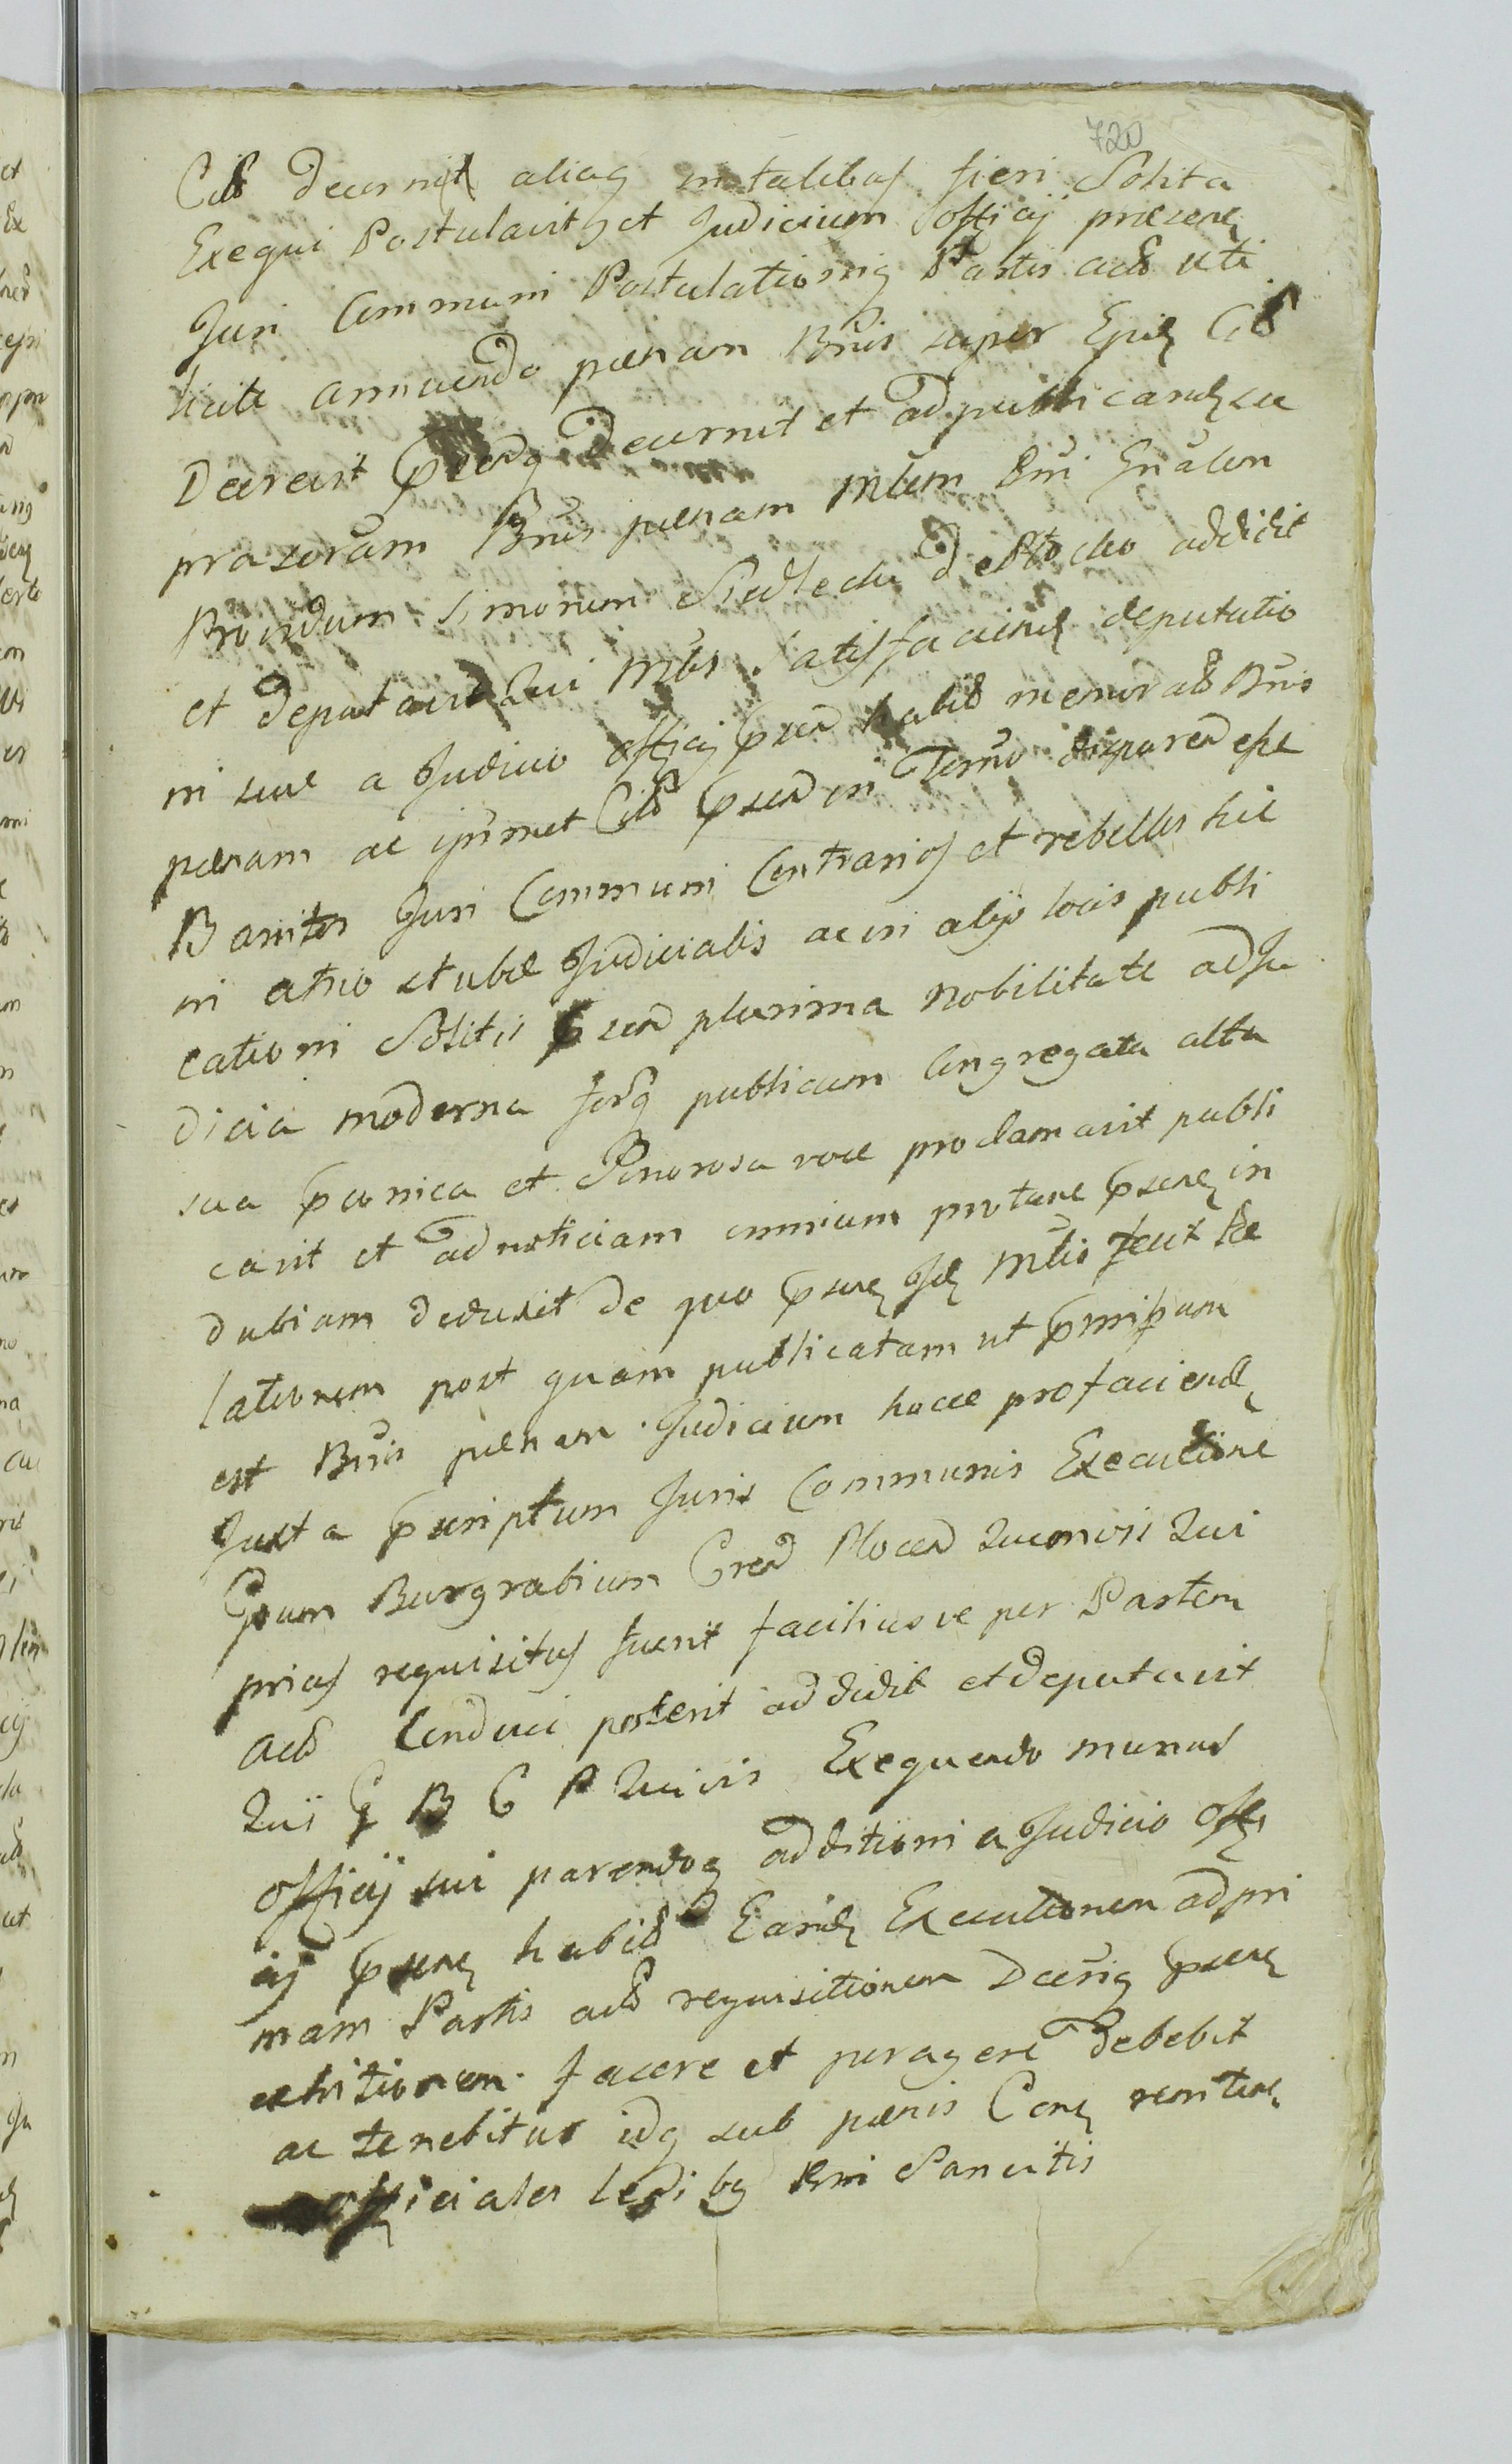 720
Citt decernit aliaq in talibus fieri Solita
Exequi Postulavit et Judicium Officij præsens
Juri Communi Postulationiq Partis actt uti
licite annuendo pænam Bnis super Epis Citt
Decrevit pserq Decernit et ad publicandsæ
prascram Bnis pænam Mlem Rni Gnalem
Providum Simonem Siedlecki de Plocko addidit
et deputavit Qui Mlis satisfaciens deputatio
ni suæ a Judicio Officij pser habitt memoratt Bnis
pænam ac ipsmet Citt pser in Termo disparen esse
Banitos Juri Communi Contrarios et rebelles hic
in atrio stubæ Judicialis ac in alijs locis publi
cationi Solitis pser plurima Nobilitate ad Ju
dicia moderna forq publicum Congregata alta
sua pconica et Sonorosa voce proclamavit publi
cavit et ad noticiam omnium protunc psens in
dubiam deduxit de quo psens Jds Mlis fecit Re
lationem post quam publicatam ut pmissum
est Bnis pænam Judicium hocce pro faciends
Juxta pscriptum Juris Communis Executione
Gsum Burgrabium Cren Plocen Quemvis Qui
prius requisitus fuerit faciliusve per Partem
actt Conduci poterit addidit et deputavit
Qui G B C P Quivis Exequendo munus
Officij sui parendoq additioni a Judicio Offi
cij psens habitt Eands Executionem ad pri
mam Partis actt requisitionem Dectiq psens
exhitionem facere et peragere debebit
ac tenebitur idq sub pænis Cons reniten
officiales legibq Rni Sancitis